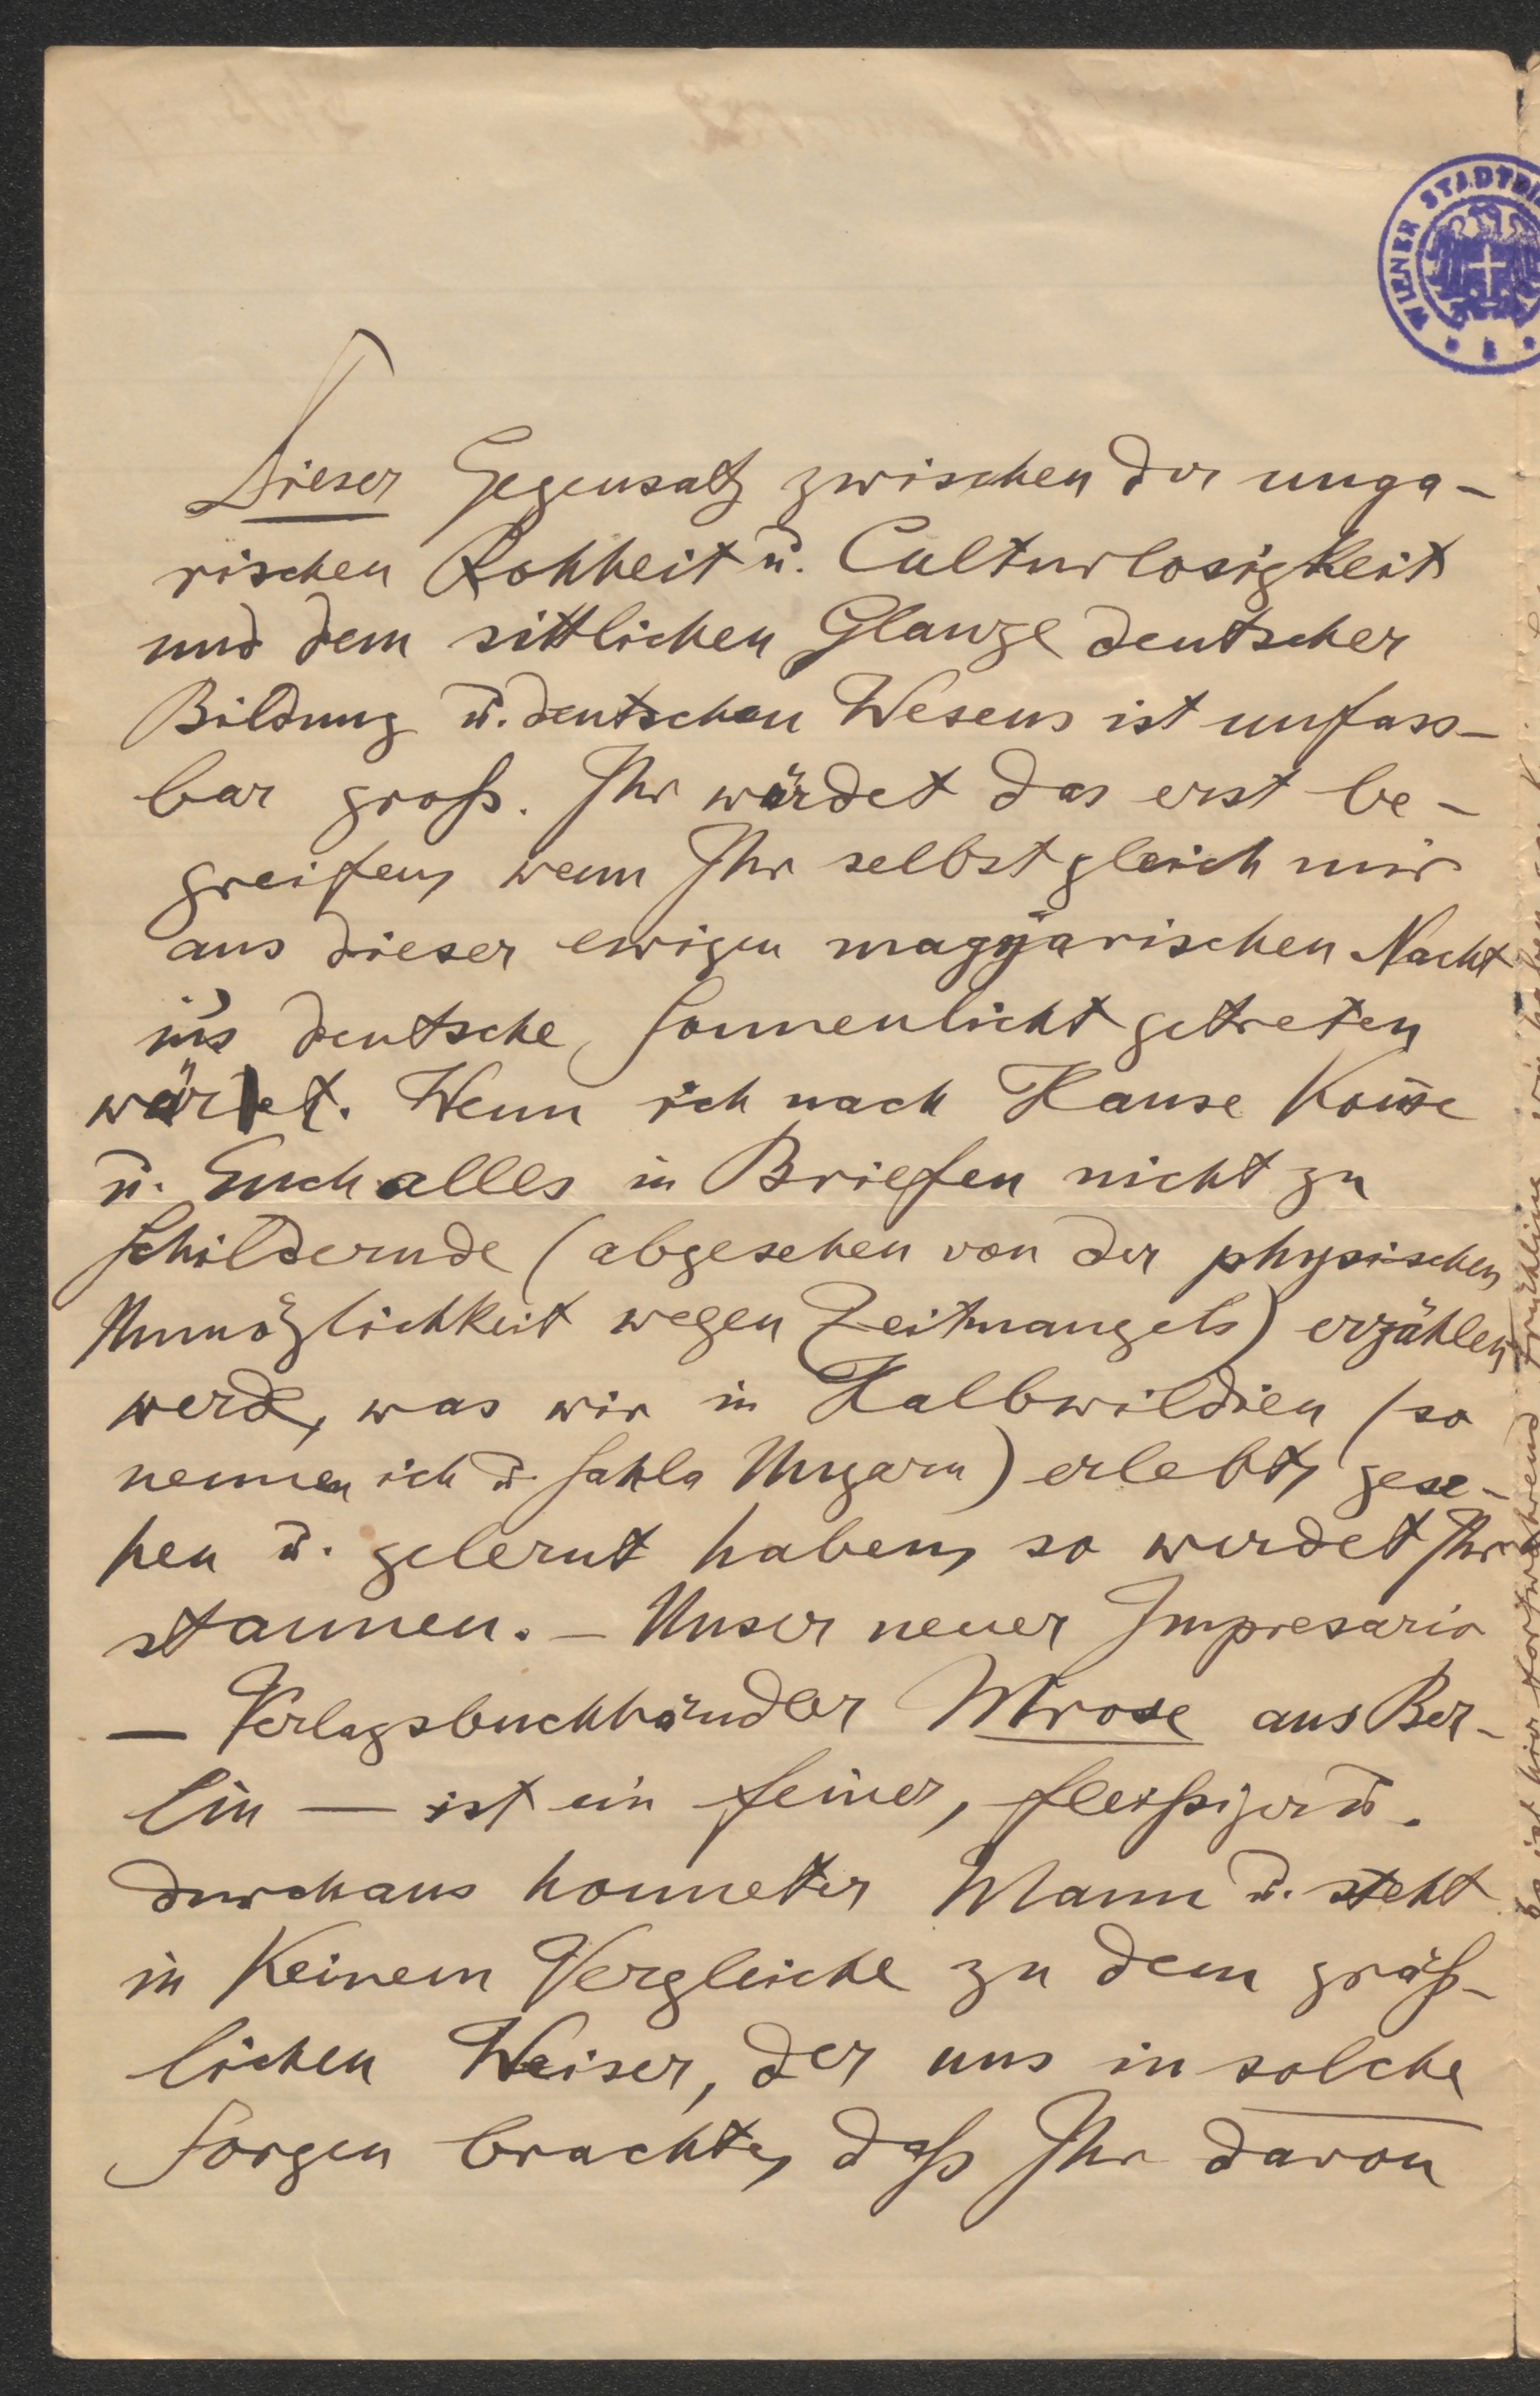 WIENER STADTBI
Dieser Gegensatz zwischen der unga-
rischen Rohheit u. Culturlosigkeit
und dem sittlichen Glanze deutscher
Bildung u. deutschen Wesens ist unfass-
bar groß. Ihr würdet das erst be-
greifen, wenn Ihr selbst gleich mir
aus dieser ewigen magyarischen Nacht
in's deutsche Sonnenlicht getreten
wäret. Wenn ich nach Hause kom̅e
u. Euch alles in Briefen nicht zu
schildernde (abgesehen von der physischen
Unmöglichkeit wegen Zeitmangels) erzählen
werde, was wir in Halbwildien (so
nennen ich u. Sahla Ungarn) erlebt, gese-
hen u. gelernt haben, so werdet Ihr
staunen. – Unser neuer Impresario
— Verlagsbuchhändler Mrose aus Ber-
lin — ist ein feiner, fleißiger u.
durchaus honneter Mann u. steht
in keinem Vergleiche zu dem gräß-
lichen Weiser, der uns in solche
Sorgen brachte, daß Ihr davon